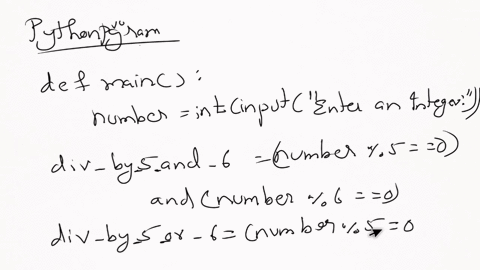 Python program
def main():
number = int(input("Enter an Integer:"))
div_by_5_and_6 = (number % 5 == 0)
and (number % 6 == 0)
div_by_5_or_6 = (number % 5 = 0